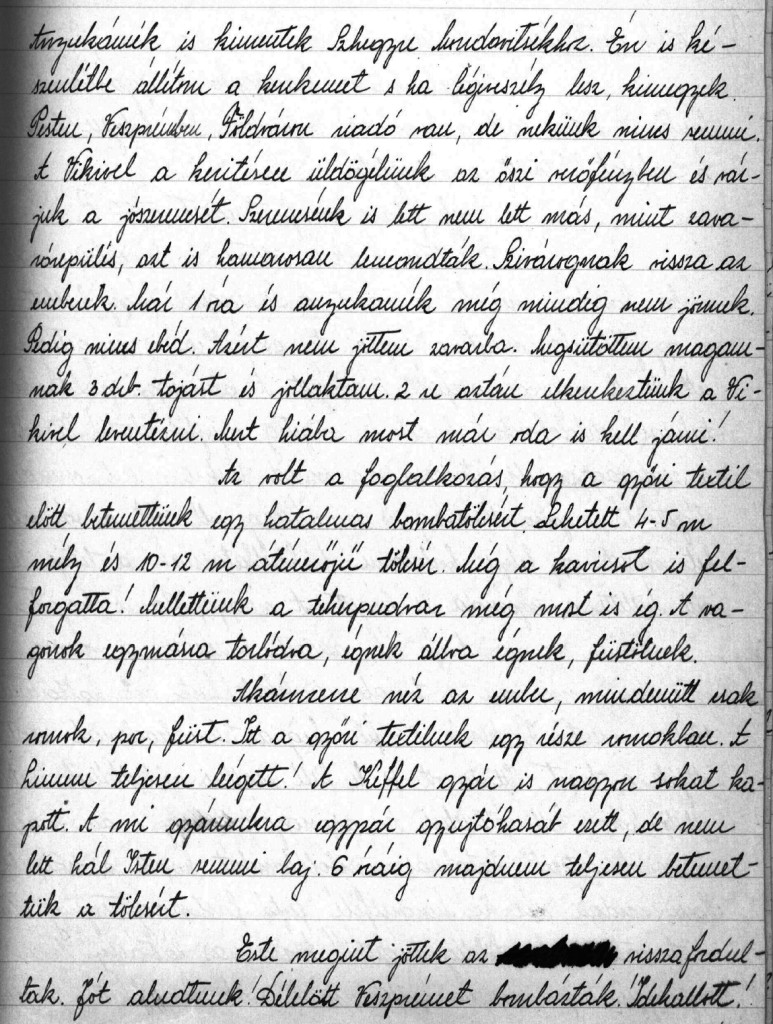 Anzukámék is kimentek Szhegyre Mondovitsékhoz. Én is ké-
szenlétbe állítom a kenkemet s ha légiveszély lesz, kimegyek.
Pesten, Veszprémben, Földváron riadó van, de nekünk nincs semmi.
A Vikivel a kerítésen üldögélünk az őszi verőfényben és vár-
juk a jószerencsét. Szerencsénk is lett nem lett más, mint zava-
rórepülés, azt is hamarosan lemondták. Szivárognak vissza az
emberek. Már 1 óra és anzukámék még mindig nem jönnek.
Pedig nincs ebéd. Azért nem jöttem zavarba. Megsütöttem magam-
nak 3 drb. tojást és jóllaktam. 2 re aztán elkerekeztünk a Vi-
kivel leventézni. Mert hiába most már oda is kell járni!
Az volt a foglalkozás, hogy a győri textil
előtt betemettünk egy hatalmas bombatölcsért. Lehetett 4-5 m
mély és 10-12 m átmérőjű tölcsér. Még a kavicsot is fel-
forgatta! Mellettünk a teherpudvar még most is ég. A va-
gonok egymásra torlódva, égnek állva égnek, füstölnek.
Akármerre néz az ember, mindenütt csak
romok, por, füst. Itt a győri textilnek egy része romokban. A
himm teljesen leégett! A Keffel gyár is nagyon sokat ka-
pott. A mi gyárunkra egypár gyujtóhasáb esett, de nem
lett hál Isten semmi baj. 6 óráig majdnem teljesen betemet-
tük a tölcsért.
Este megint jöttek az visszafordul-
tak. Jót aludtunk! Délelött Veszprémet bombázták. Idehallott!